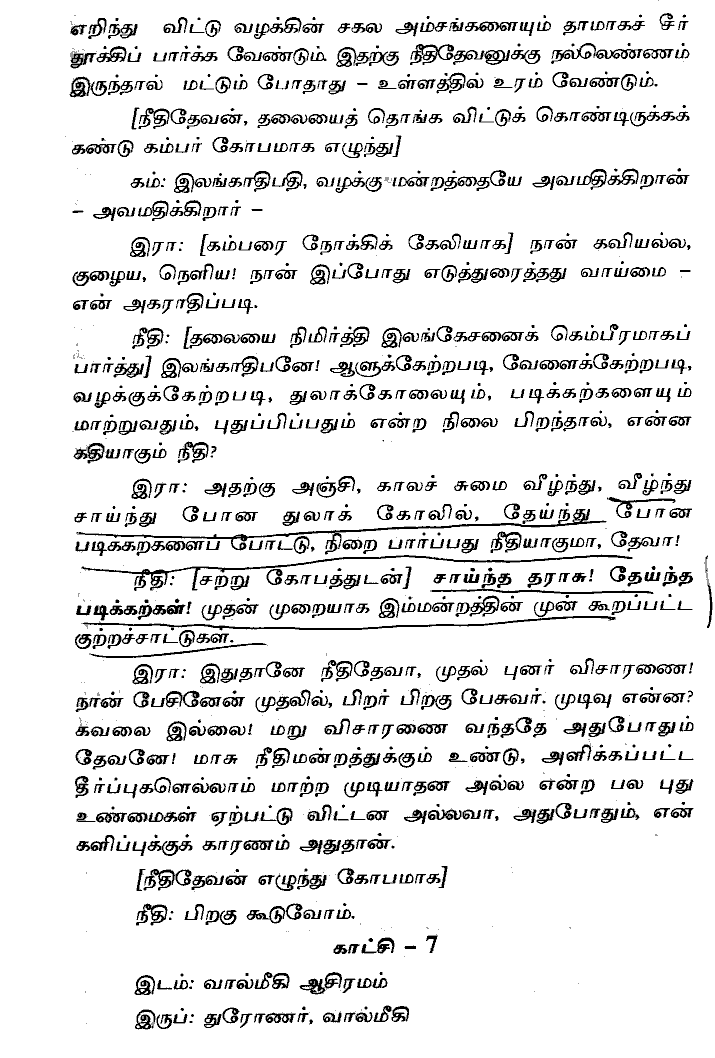 எறிந்து விட்டு வழக்கின் சகல அம்சங்களையும் தாமாகச் சீர்
தூக்கிப் பார்க்க வேண்டும். இதற்கு நீதிதேவனுக்கு நல்லெண்ணம்
இருந்தால் மட்டும் போதாது – உள்ளத்தில் உரம் வேண்டும்.
[நீதிதேவன், தலையைத் தொங்க விட்டுக் கொண்டிருக்கக்
கண்டு கம்பர் கோபமாக எழுந்து]
கம்: இலங்காதிபதி, வழக்கு மன்றத்தையே அவமதிக்கிறான்
– அவமதிக்கிறார் –
இரா: [கம்பரை நோக்கிக் கேலியாக] நான் கவியல்ல,
குழைய, நெளிய! நான் இப்போது எடுத்துரைத்தது வாய்மை –
என் அகராதிப்படி.
நீதி: [தலையை நிமிர்த்தி இலங்கேசனைக் கெம்பீரமாகப்
பார்த்து] இலங்காதிபனே! ஆளுக்கேற்றபடி, வேளைக்கேற்றபடி,
வழக்குக்கேற்றபடி, துலாக்கோலையும், படிக்கற்களையும்
மாற்றுவதும், புதுப்பிப்பதும் என்ற நிலை பிறந்தால், என்ன
கதியாகும் நீதி?
இரா: அதற்கு அஞ்சி, காலச் சுமை வீழ்ந்து, வீழ்ந்து
சாய்ந்து போன துலாக் கோலில், தேய்ந்து போன
படிக்கற்களைப் போட்டு, நிறை பார்ப்பது நீதியாகுமா, தேவா!
நீதி: [சற்று கோபத்துடன்] சாய்ந்த தராசு! தேய்ந்த
படிக்கற்கள்! முதன் முறையாக இம்மன்றத்தின் முன் கூறப்பட்ட
குற்றச்சாட்டுகள்.
இரா: இதுதானே நீதிதேவா, முதல் புனர் விசாரணை!
நான் பேசினேன் முதலில், பிறர் பிறகு பேசுவர். முடிவு என்ன?
கவலை இல்லை! மறு விசாரணை வந்ததே அதுபோதும்
தேவனே! மாசு நீதிமன்றத்துக்கும் உண்டு, அளிக்கப்பட்ட
தீர்ப்புகளெல்லாம் மாற்ற முடியாதன அல்ல என்ற பல புது
உண்மைகள் ஏற்பட்டு விட்டன அல்லவா, அதுபோதும், என்
களிப்புக்குக் காரணம் அதுதான்.
[நீதிதேவன் எழுந்து கோபமாக]
நீதி: பிறகு கூடுவோம்.
காட்சி – 7
இடம்: வால்மீகி ஆசிரமம்
இருப்: துரோணர், வால்மீகி